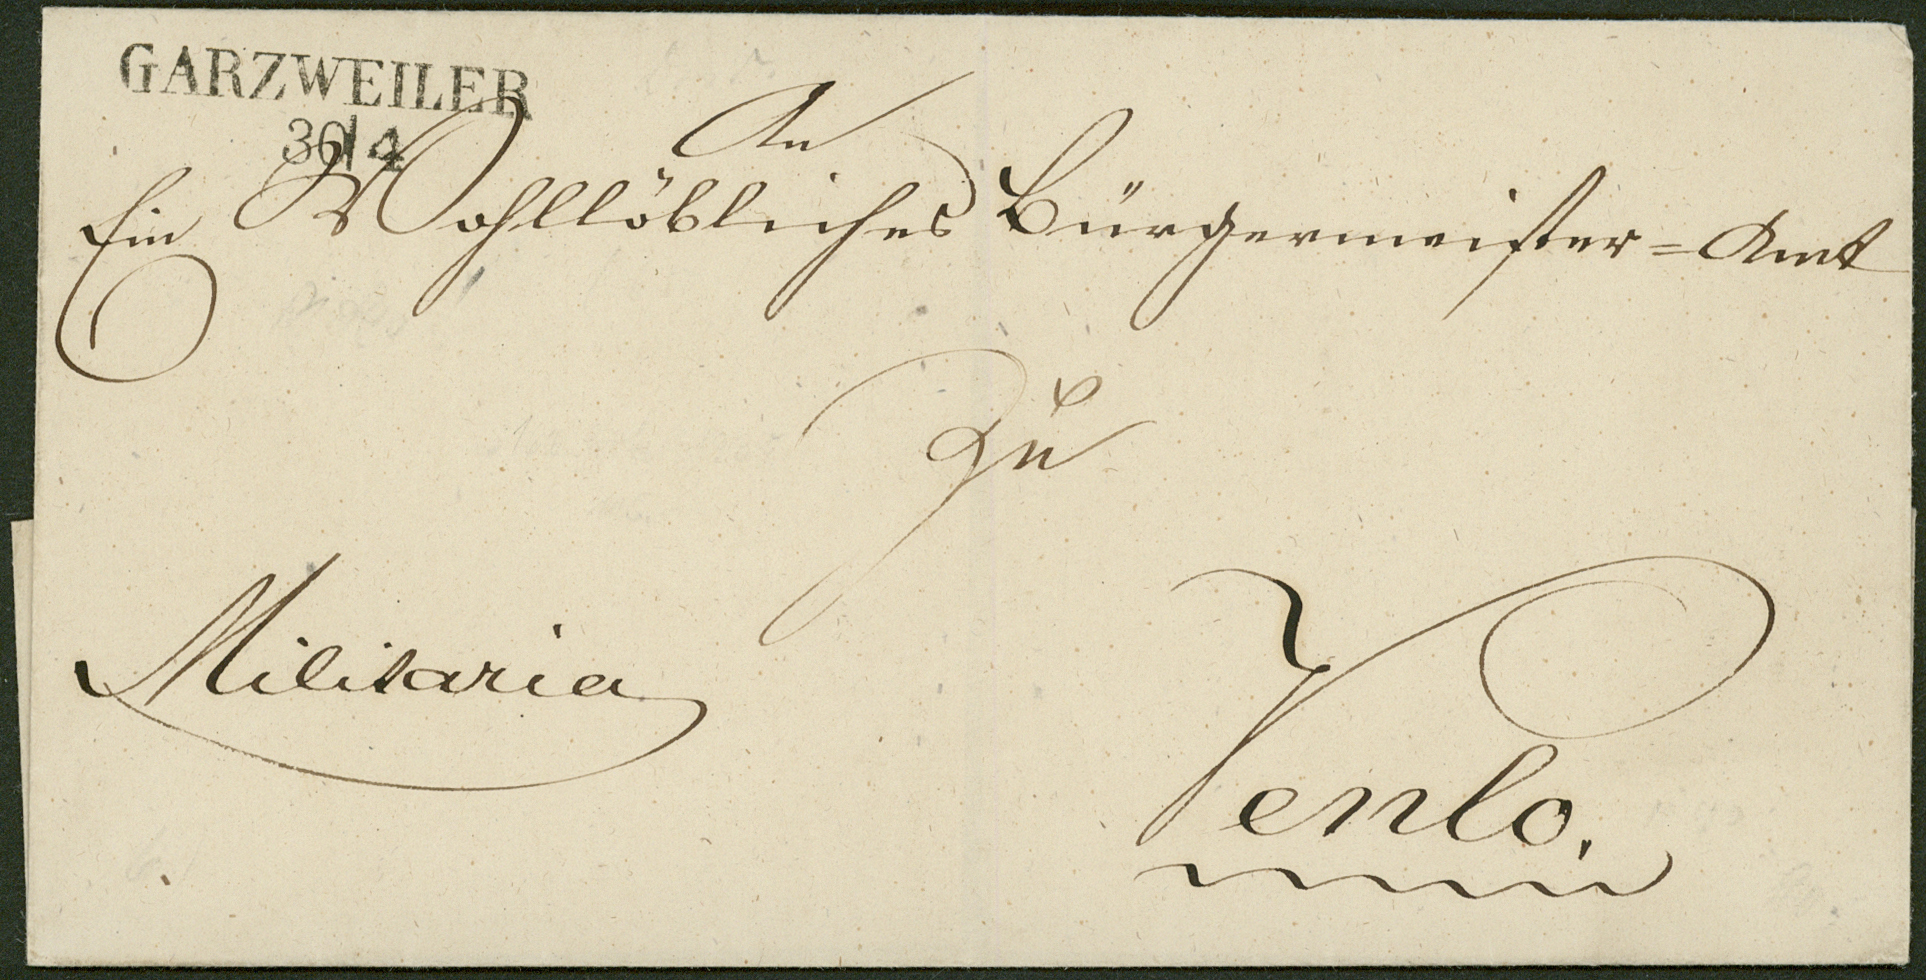 GARZWEILER
30/4
An
Ein Wohllöbliches Bürgermeister=Amt
Zu
Militaria
Venlo.